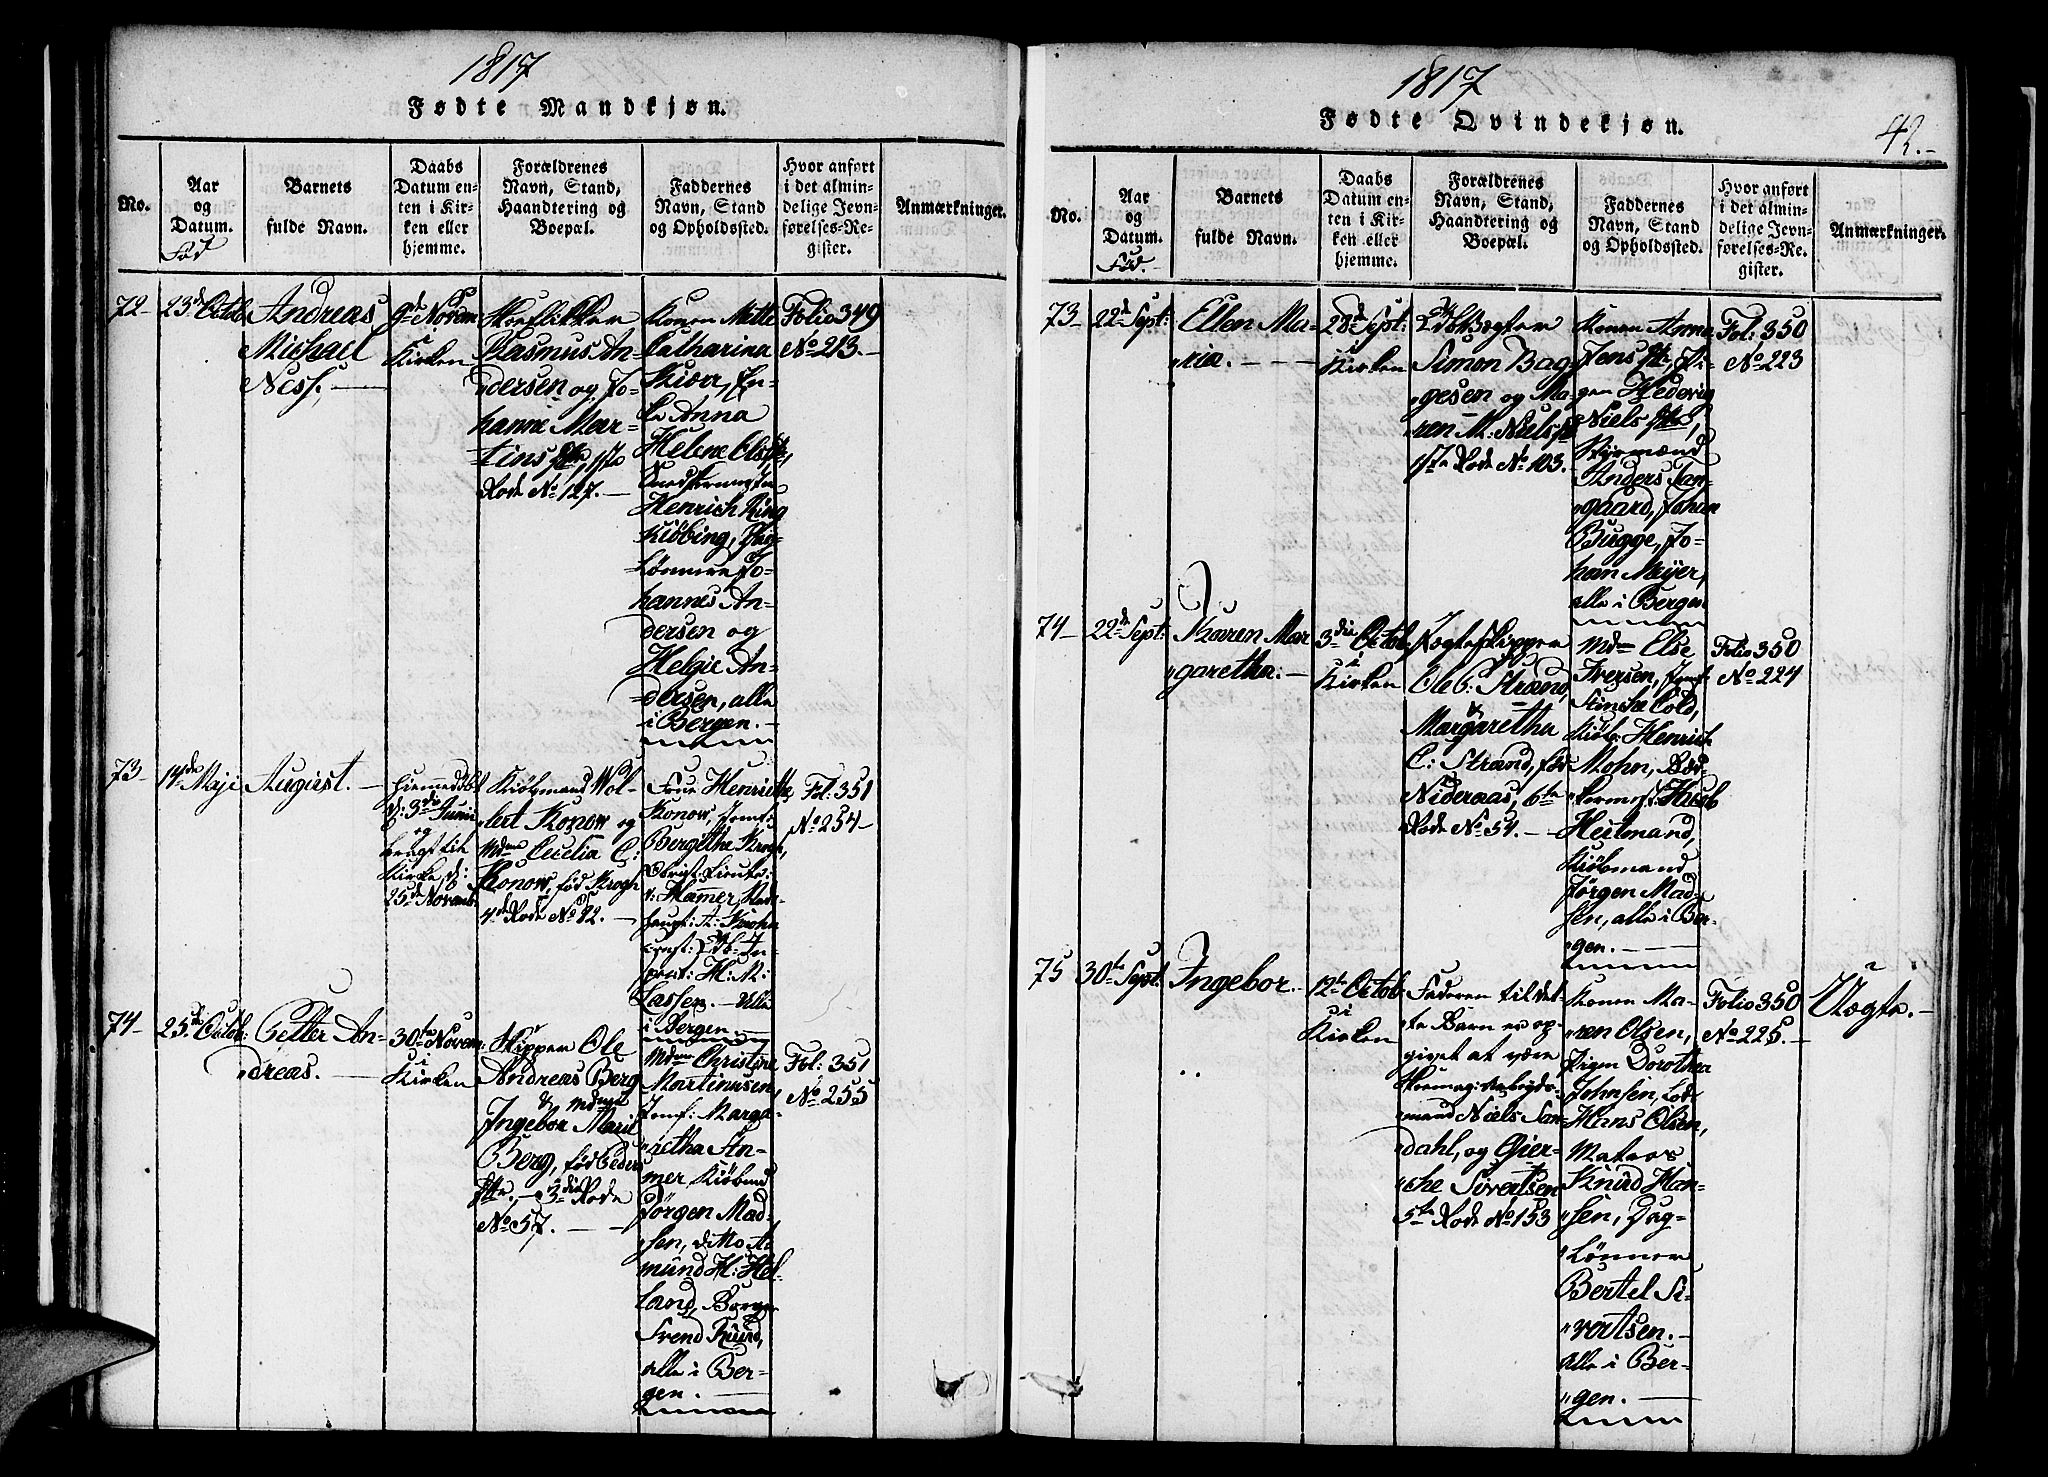 1817
Fødte Mandkjøn.
No.
Aar
og
Datum.
Fød
Barnets
fulde Navn.
Daabs
Datum en-
ten i Kir-
ken eller
hjemme.
Forældrenes
Navn, Stand,
Haandtering og
Boepæl.
Faddernes
Navn, Stand
og Opholdssted.
Hvor anført
i det almin-
delige Jevn-
førelses-Re-
gister.
Anmærkninger.
72-
23de Octob
Andreas
Michael
Ness.
9de Novem
i
Kirken
Skoeflikker
Rasmus An-
dersen og Jo-
hanne Mar-
tins
Rode No 127.
Konen Mette
Catharina
Skiær, En-
ke Anna
Helene Ols
Henrich Ring
kiøbing, Dag-
Lønnere Jo-
hannes An-
dersen og
Helgie An-
dersen, alle
i Bergen.
Folio 349
No 213.
73-
14de Maji
August.
Hiemmedøbt
d: 3die Junii
og
bragt til
Kirke d:
25de Novemb
Kiøbmand Wol-
lert Konow og
Mdme Cecelia C:
Konow, fød Krogh
4de Rode No 82.
Frue Henriethe
Konow, Jomf:
Bergithe Krogh,
Hammer,
Lassen. alle
i Bergen.
Fol: 351
No 254
74-
25de Octob:
Petter An-
dreas.
30te Novem:
i
Kirken
Skipper Ole
Andreas Berg
& Mdme
Ingebor Marie
Berg, fød Peders
3die Rode
No 57.
Mdme Christine
Martinusen,
Jomf: Marga-
retha An-
mer, Kiøbmd
Jørgen Mad-
sen, dito A
mund H: Hel-
land, Borger
Svend Knud,
alle i Ber-
gen.
Fol: 351
No 255
1817
Fødte Qvindekjøn.
42.-
No.
Aar
og
Datum.
Fød.
Barnets
fulde Navn.
Daabs
Datum en-
ten i Kir-
ken eller
hjemme.
Forældrenes
Navn, Stand,
Haandtering og
Boepæl.
Faddernes
Navn, Stand
og Opholdssted.
Hvor anført
i det almin-
delige Jevn-
førelses-Re-
gister.
Anmærkninger.
73-
22de Sept:
Ellen Ma-
ria.
28de Sept:
i
Kirken
Simon Bag-
gesen og Ma-
ren M: Niels
17te Rode No 103.
Konen Anne
Jens, Pi-
gen Hedevig
Niels,
Styrmænd
Anders Tan-
gaard, Johan
Bugge, Jo-
han Meÿer,
alle i Bergen
Fol: 350
No 223
74-
22de Sept:
Karen Mar
garetha.
3die Octob:
i
Kirken
Jægteskipper
Ole C: Strand,
&
Margaretha
C: Strand, fød
Nideraas, 6te
Rode No 54.
Mdme Else
Iversen, Jomf:
Stinche Cold,
Kiøb: Henrich
Mohn,
Heitmand,
Kiøbmand
Jørgen Mad-
sen, alle i Ber-
gen.
Folio 350
No 224
75
30te Sept:
Ingebor.
12te Octob:
i
Kirken
Faderen til det-
te Barn er op-
givet at være
mand Niels San-
dahl, og Gier-
che Sivertsen
5te Rode No 153
Konen Ma-
ren Olsen,
Pigen Dorothea
Johnsen,
Hans Olsen,
Matros
Knud Han-
sen, Dag-
Lønner
Bertel Si-
vertsen.
alle i Ber-
gen.
Folio 350
No 225.
Uægte.